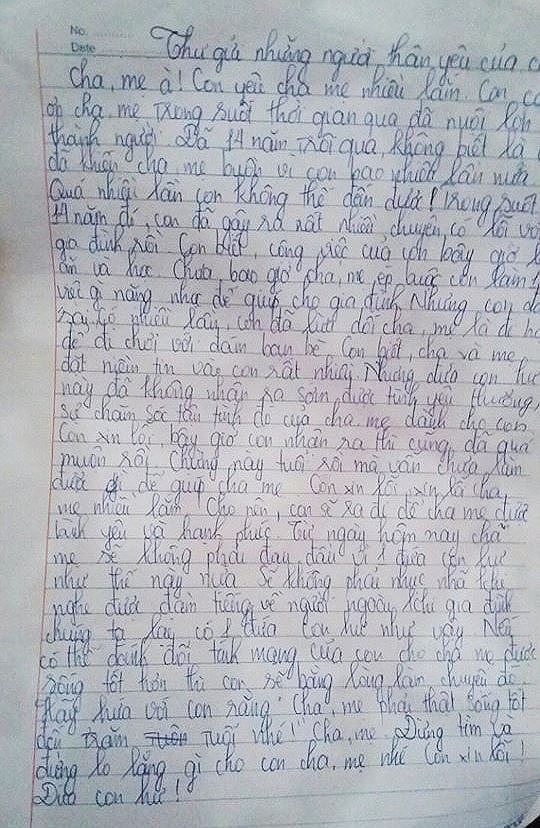 No.
Date
Thư gửi những người thân yêu của c
Cha, mẹ à! Con yêu cha mẹ nhiều lắm. Con
ơn cha, mẹ trong suốt thời gian qua đã nuôi lớn
thành người. Đã 14 năm trôi qua, không biết là
đã khiến cha, mẹ buồn vì con bao nhiêu lần nữa
Quá nhiều lần con không thể đếm được! Trong suốt
14 năm đó, con đã gây ra rất nhiều chuyện, có lỗi với
gia đình rồi. Con biết, công việc của con bây giờ là
ăn và học. Chưa bao giờ cha, mẹ ép buộc con làm 1
việc gì nặng nhọc để giúp cho gia đình. Nhưng con đã
nhiều lần, con đã lừa dối cha, mẹ là đi học
để đi chơi với đám bạn bè. Con biết, cha và mẹ
đặt niềm tin vào con rất nhiều. Nhưng đứa con hư
này đã không nhận ra sớm được tình yêu thương,
sự chăm sóc tận tình đó của cha, mẹ dành cho con.
Con xin lỗi, bây giờ con nhận ra thì cũng đã quá
muộn rồi. Chừng này tuổi rồi mà vẫn chưa làm
được gì để giúp cha mẹ. Con xin lỗi, xin lỗi cha,
mẹ nhiều lắm! Cho nên, con sẽ ra đi để cha mẹ được
bình yên và hạnh phúc. Từ ngày hôm nay cha
mẹ sẽ không phải đau đầu vì 1 đứa con hư
như thế này nữa. Sẽ không phải nhục nhã khi
nghe được đàm tiếng về người ngoài khi gia đình
chúng ta lại có 1 đứa con hư như vậy. Nếu
có thể đánh đổi tính mạng của con cho cha mẹ được
sống tốt hơn thì con sẽ bằng lòng làm chuyện đó.
Hãy hứa với con rằng "Cha, mẹ phải thật sống tốt
đến trăm tuổi nhé!" Cha, mẹ. Đừng tìm và
đừng lo lắng gì cho con cha, mẹ nhé. Con xin lỗi!
Đứa con hư!